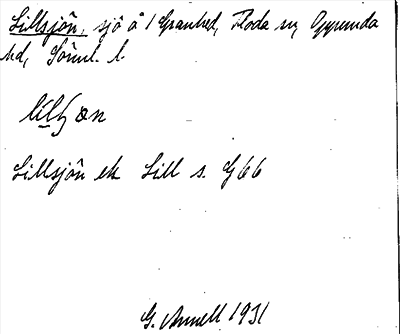 Lillsjön, sjö å 1 Granhed, Floda sn, Oppunda
hd, Söml. l.
Lillsjön ek Lill s. G 66
G. Annell 1931